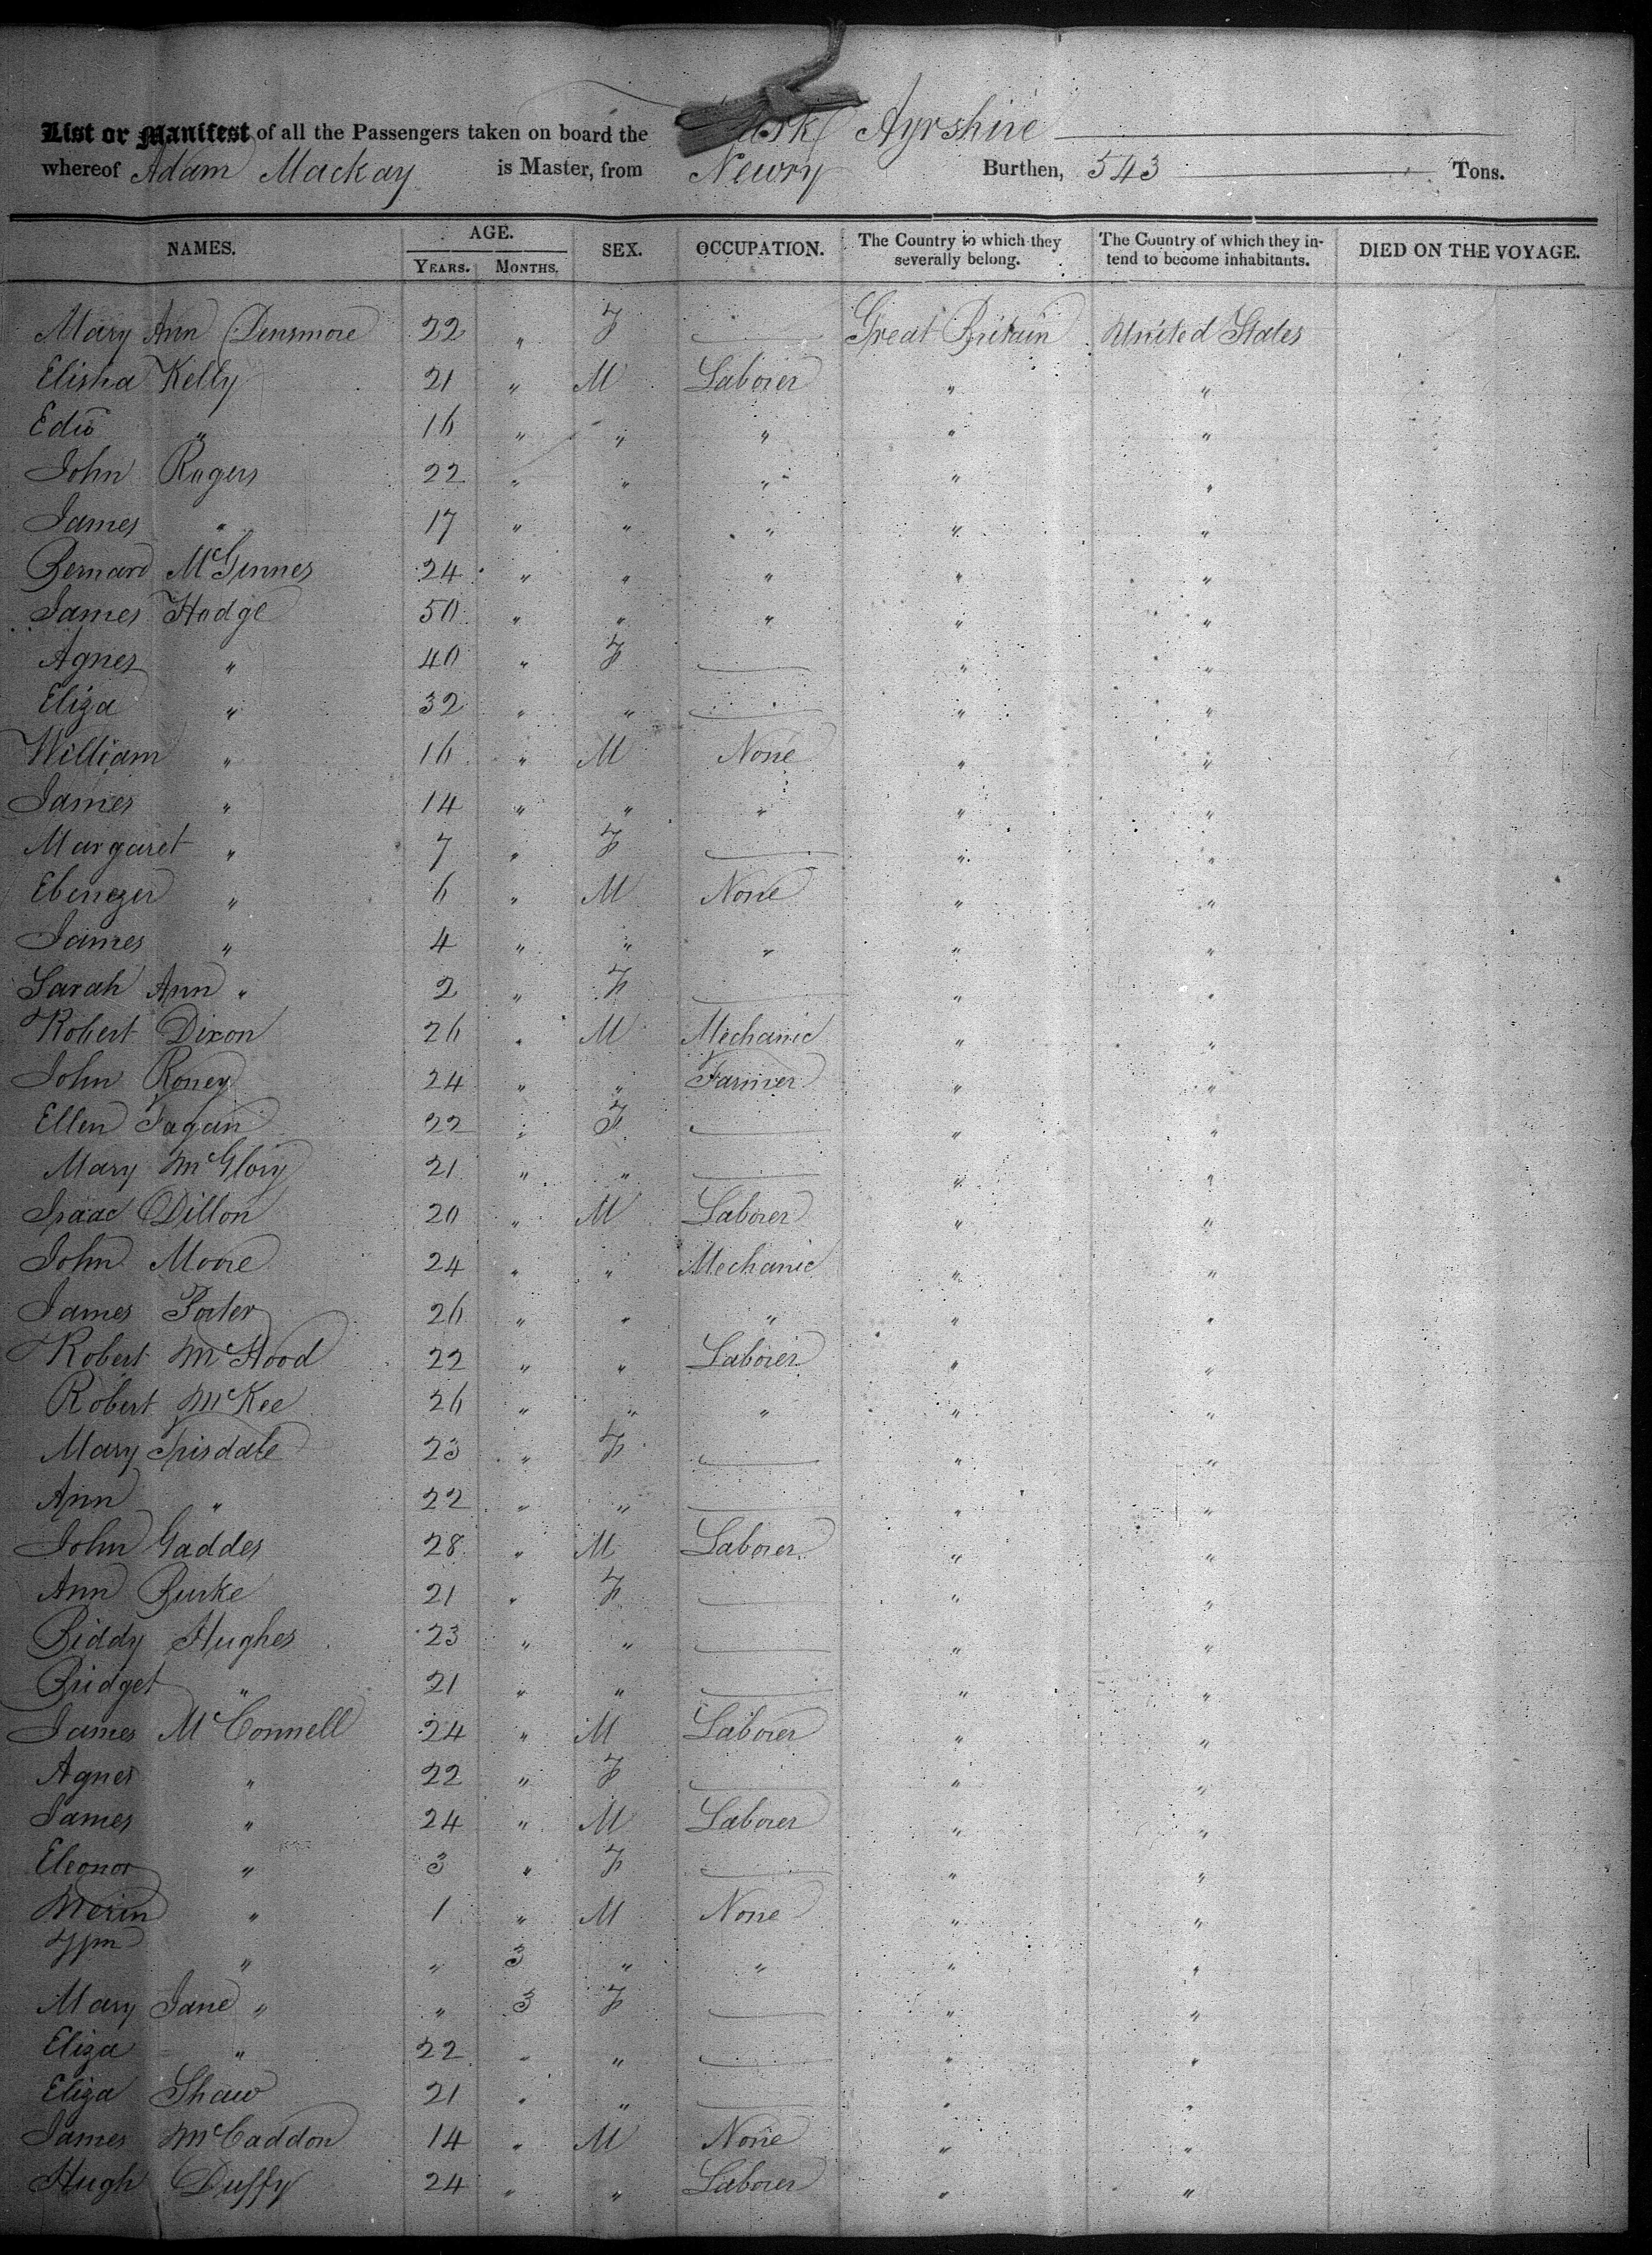 List or Manifest of all the Passengers taken on board the Bark Ayrshire
whereof Adam Mackay is Master, from Newry Burthen, 543 Tons.
NAMES. AGE. YEARS. MONTHS. SEX. OCCUPATION. The Country to which they severally belong. The Country of which they intend to become inhabitants. DIED ON THE VOYAGE.
Mary Ann Densmore 22 " F — Great Britain United States
Elisha Kelly 21 " M Laborer " "
Edw " 16 " " " " "
John Rogers 22 " " " " "
James " 17 " " " " "
Bernard McGinnes 24 " " " " "
James Hodge 50 " " " " "
Agnes " 40 " F — " "
Eliza " 32 " " — " "
William " 16 " M None " "
James " 14 " " " " "
Margaret " 7 " F — " "
Ebenezer " 6 " M None " "
James " 4 " " " " "
Sarah Ann " 2 " F — " "
Robert Dixon 26 " M Mechanic " "
John Roney 24 " " Farmer " "
Ellen Fagan 22 " F — " "
Mary McGlory 21 " " — " "
Isaac Dillon 20 " M Laborer " "
John Moore 24 " " Mechanic " "
James Porter 26 " " " " "
Robert McHood 22 " " Laborer " "
Robert McKee 26 " " " " "
Mary 23 " F — " "
Ann " 22 " " — " "
John Gaddes 28 " M Laborer " "
Ann Burke 21 " F — " "
Biddy Hughes 23 " " — " "
Bridget " 21 " " — " "
James McConnell 24 " M Laborer " "
Agnes " 22 " F — " "
James " 24 " M Laborer " "
Eleonor " 3 " F — " "
" 1 " M None " "
Wm " " 3 " " " "
Mary Jane " " 3 F — " "
Eliza " 22 " " — " "
Eliza Shaw 21 " " — " "
James McCaddon 14 " M None " "
Hugh Duffy 24 " " Laborer " "